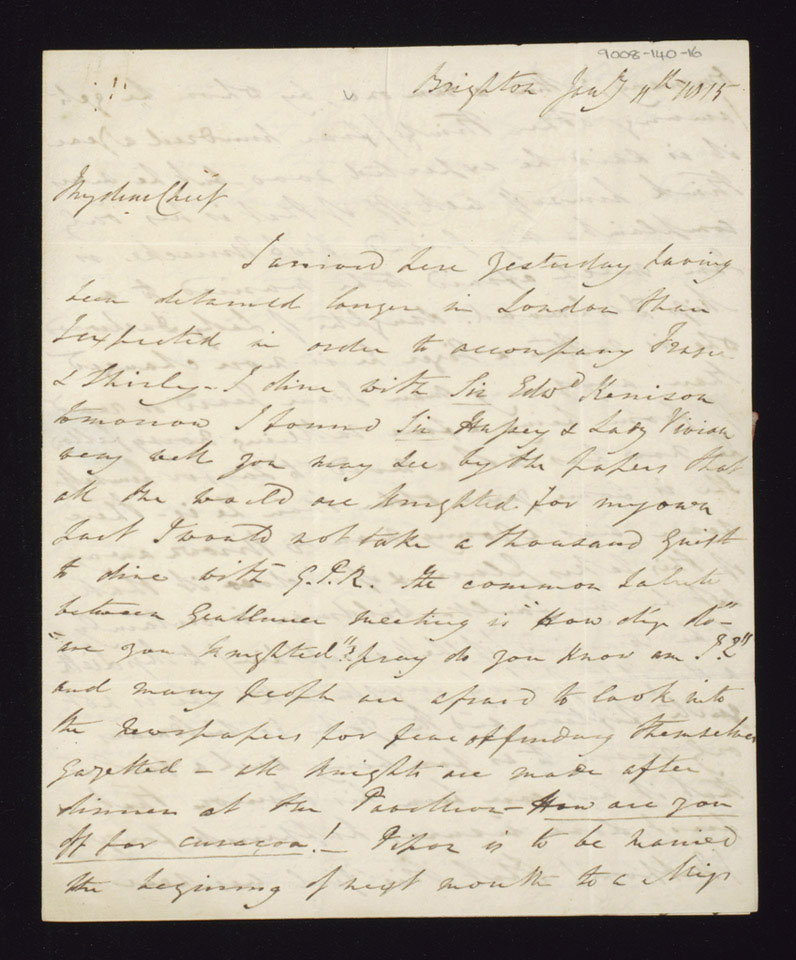 9008-140-16
Brighton Jany 11th 1815
My dear Chief
I arrived here yesterday having
been detained longer in London than
I expected in order to accompany Fraser
& Shirley - I dine with Sir Edwd Kerrison
tomorrow I found Sir Hussey & Lady Vivian
very well you may see by the papers that
all the world are Knighted. for my own
part I would not take a thousand
to dine with G.P.R. the common salute
between Gentlemen meeting is "How d'ye do"
"are you knighted"? pray do you know am I?"
and many people are afraid to look into
the Newspapers for fear of finding themselves
Gazetted - all Knights are made after
dinner at the Pavillion - How are you
off for curacoa! - is to be married
the beginning of next month to a Miss